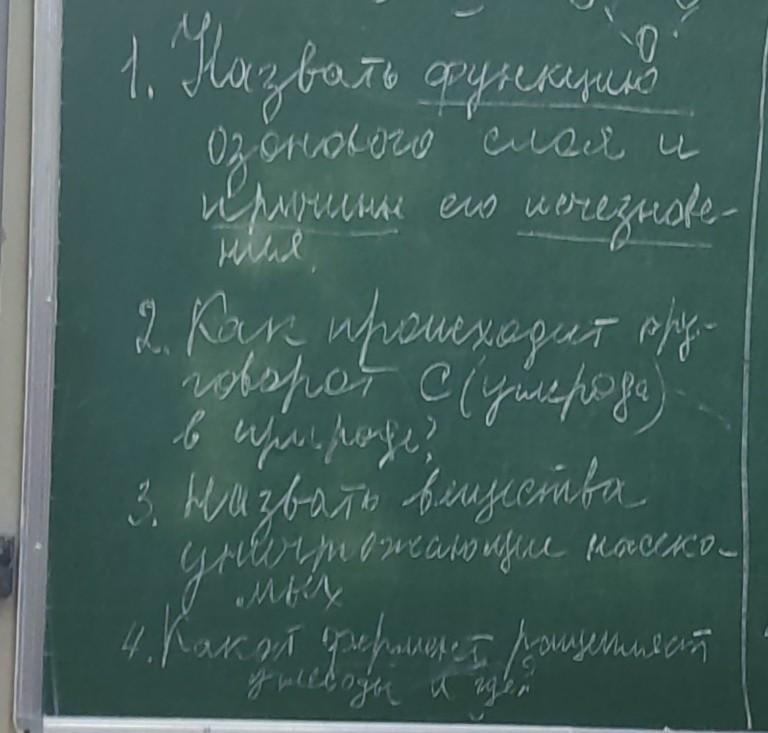 1. Назвать функцию
озонового слоя и
причины его исчезнове-
ния.
2. Как происходит кру-
говорот С (углерода)
в природе?
3. Назвать вещества
уничтожающие насеко-
мых
4. Какой фермент расщепляет
углеводы и где?